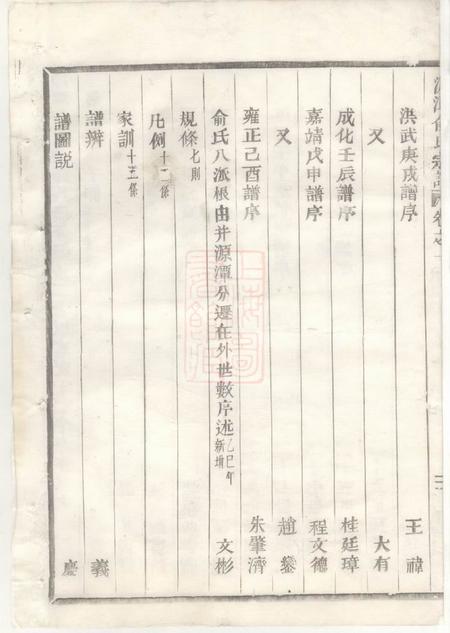 洪武庚戌譜序 王禕
又 大有
成化壬辰譜序 桂廷璋
嘉靖戊申譜序 程文德
又 趙鏜
雍正己酉譜序 朱肇濟
俞氏八派根由并源潭分遷在外世數序述乙巳年新增 文彬
規條七則
凡例十二條
家訓十三條
譜辨 義
譜圖説 慶